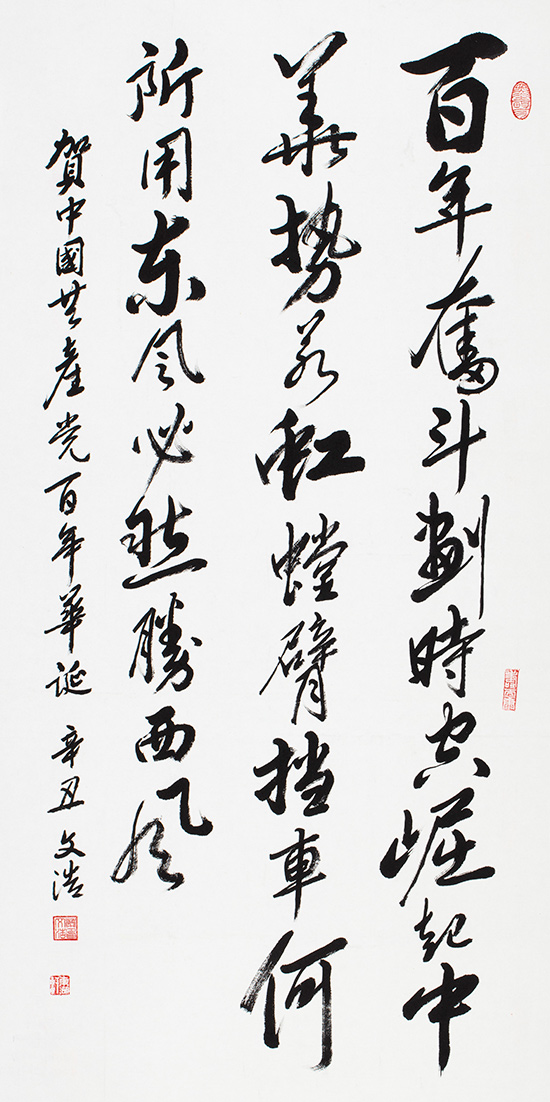 百年奮斗劃時空崛起中
華勢若虹螳臂挡車何
所用東風必然勝西風
賀中國共產党百年華誕 辛丑 文浩